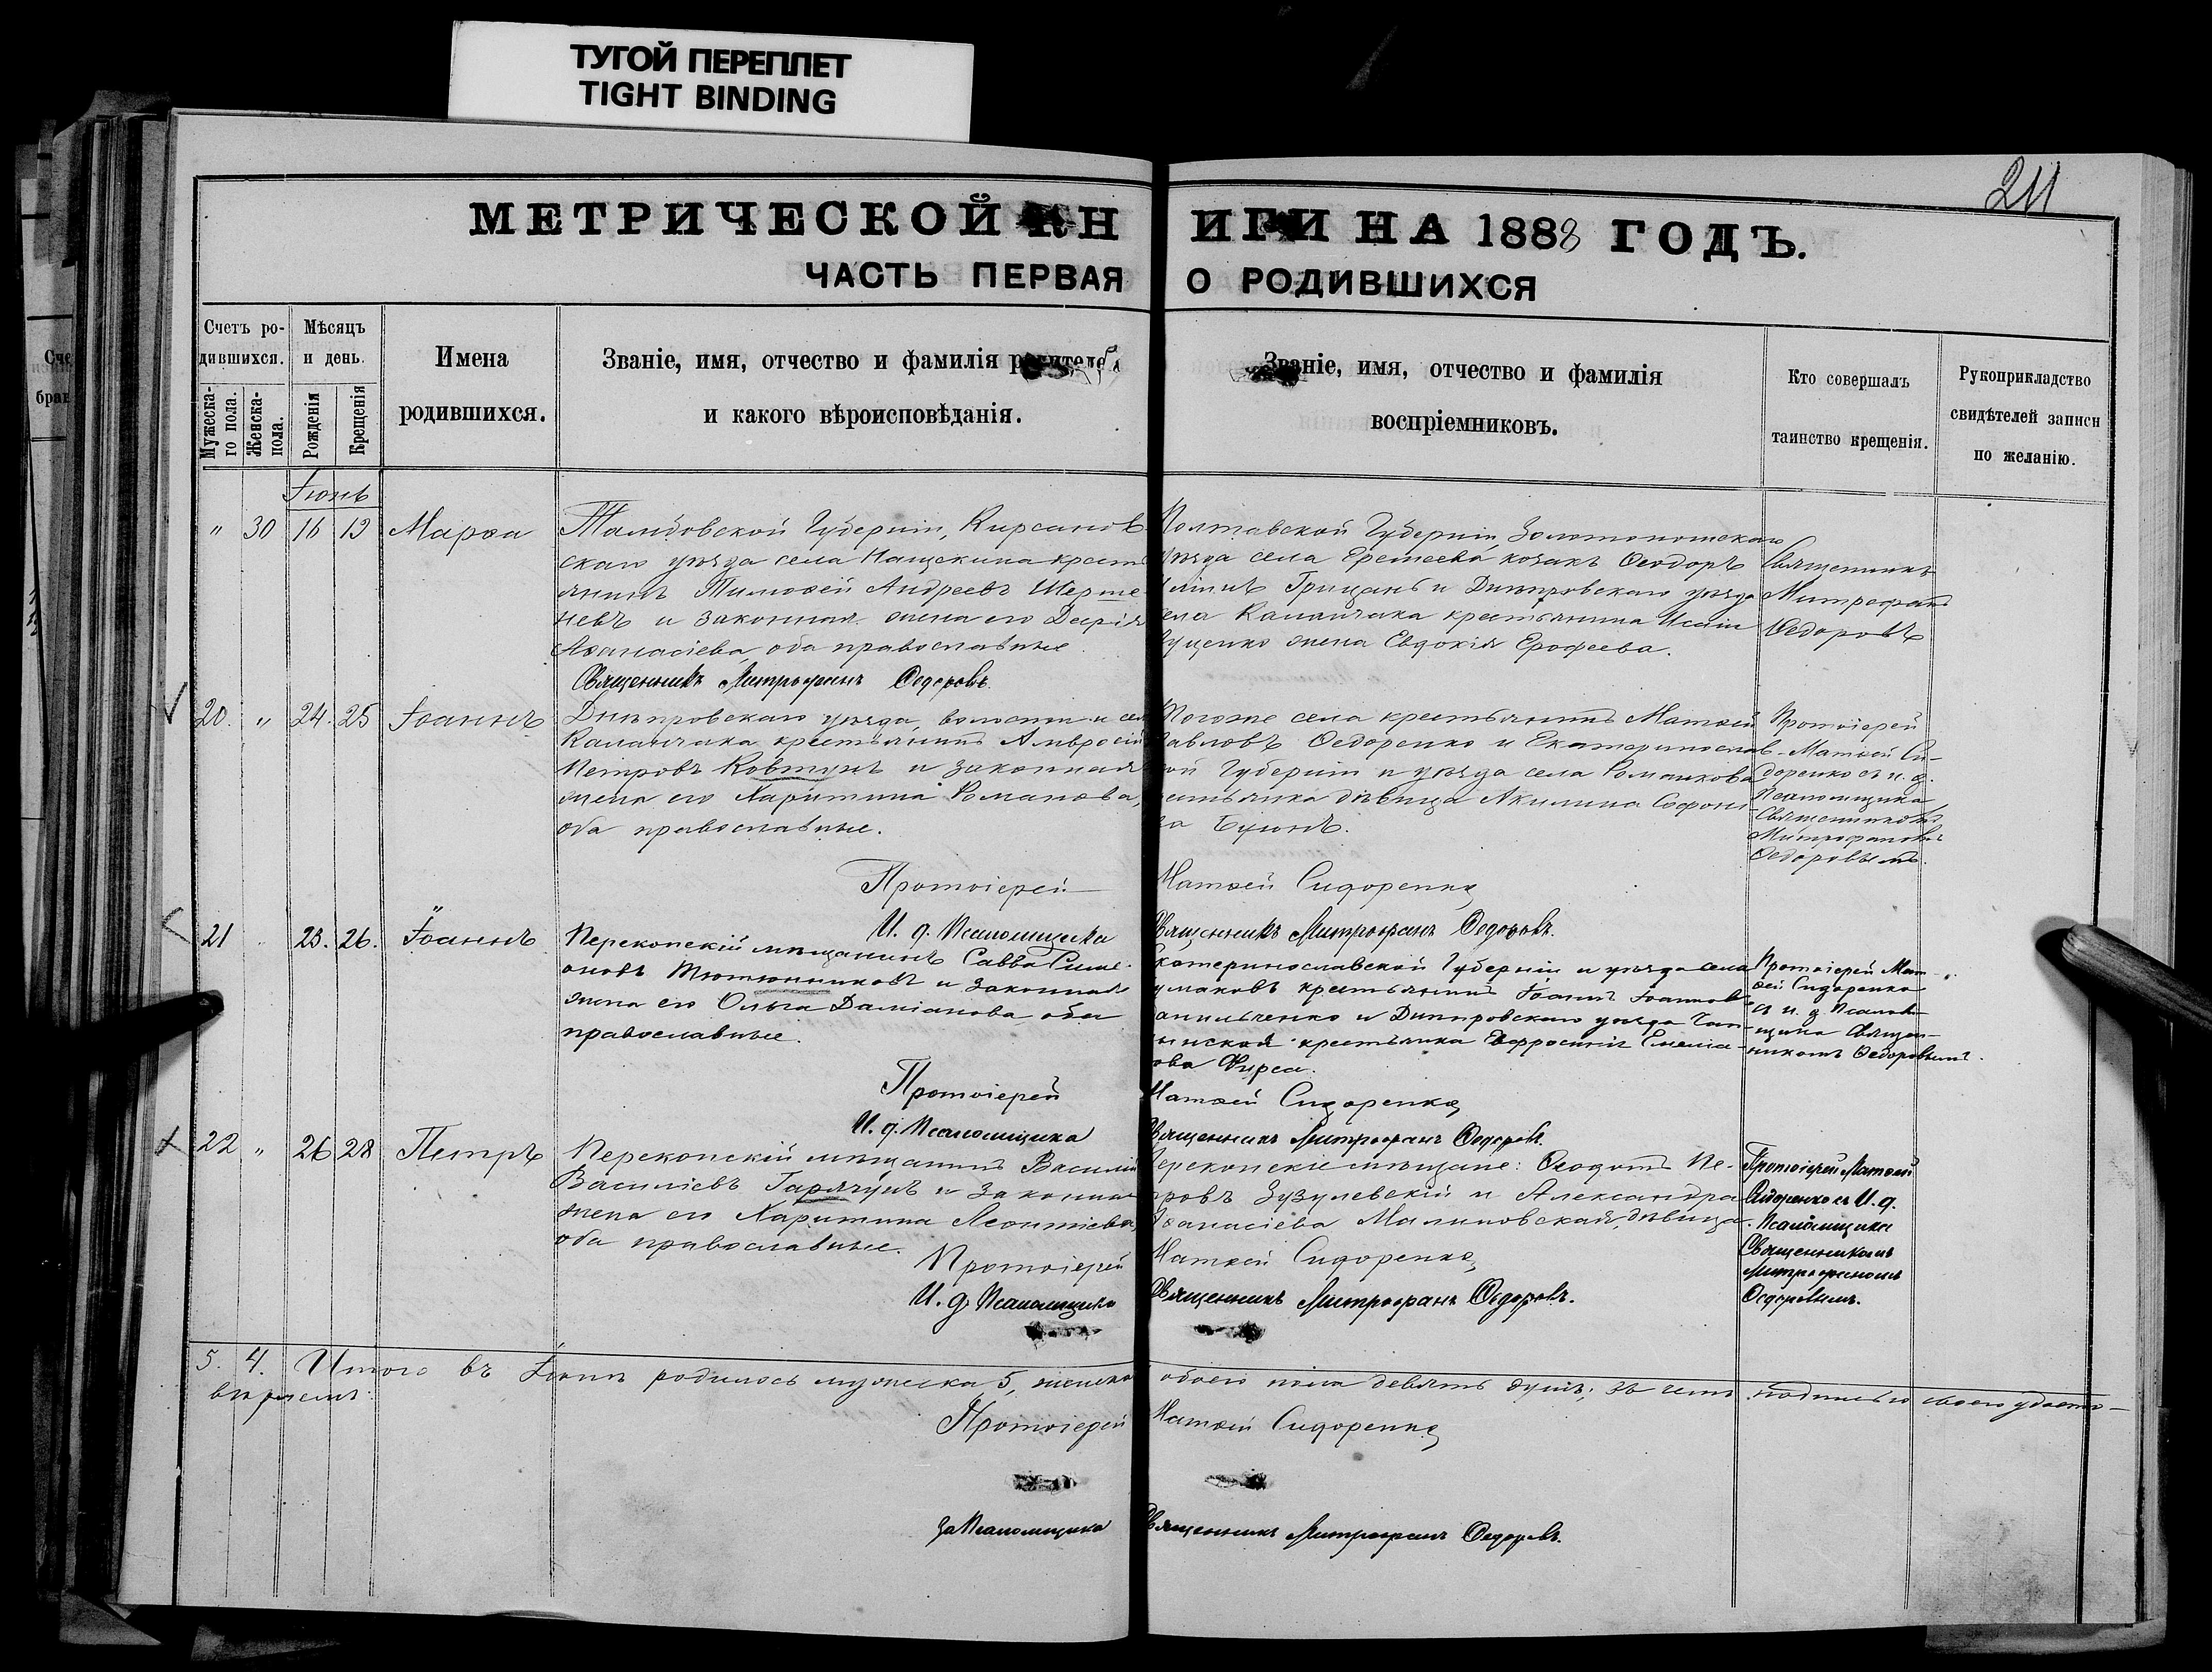 ТУГОЙ ПЕРЕПЛЕТ
TIGHT BINDING
211
МЕТРИЧЕСКОЙ КН ИГИ НА 1888 ГОДЪ.
ЧАСТЬ ПЕРВАЯ О РОДИВШИХСЯ
Счетъ ро-
дившихся.
Мужеска-
го пола.
Женска-
пола.
Мѣсяцъ
и день.
Рожденія
Крещенія
Имена
родившихся.
Званіе, имя, отчество и фамилія родителей
и какого вѣроисповѣданія.
Званіе, имя, отчество и фамилія
воспріемниковъ.
Кто совершалъ
таинство крещенія.
Рукоприкладство
свидѣтелей записи
по желанію.
Іюнь
" 30 16 19 Марѳа
Тамбовской Губерніи, Кирсанов
скаго уѣзда села Нащекина крест
янинъ Тимоѳей Андреевъ Шерше
невъ и законная жена его Дарія
Аѳанасіева, оба православные.
Священникъ Митрофанъ Ѳедоровъ.
Полтавской Губерніи, Золотоношскаго
уѣзда села Еремеева козакъ Ѳеодоръ
Грицанъ и Днѣпровскаго уѣзда
села Каланчака крестьянина Исаіи
ущенко жена Евдокія Ерофеева.
Священникъ
Митрофанъ
Ѳедоровъ
20. " 24. 25 Іоаннъ
Днѣпровскаго уѣзда, волости и сел
Каланчака крестьянинъ Амвросій
Петровъ Ковтунъ и законная
жена его Харитина Романова,
оба православные.
Тогоже села крестьянинъ Матѳей
Павловъ Ѳедоренко и Екатеринослав-
ой Губерніи и уѣзда села Романкова
рестьянка дѣвица Акилина Софоні
ва Буюнъ.
Протоіерей
Матѳей Си-
доренко съ и. д.
Псаломщика
Священникомъ
Митрофаномъ
Ѳедоровымъ.
Протоіерей Матѳей Сидоренко
И. д. Псаломщика Священникъ Митрофанъ Ѳедоровъ.
21 " 23. 26. Іоаннъ
Перекопскій мѣщанинъ Савва Симе-
оновъ Тютюнниковъ и законная
жена его Ольга Даміанова оба
православные.
Екатеринославской Губерніи и уѣзда села
умаковъ крестьянинъ Іоаннъ Іоанновъ
анильченко и Днѣпровскаго уѣзда Чап-
линская крестьянка Евфросинія Емеліа-
нова Фирса.
Протоіерей Мат-
ѳей Сидоренко
съ и. д. Псалом-
щика Священ-
никомъ Ѳедоровымъ.
Протоіерей Матѳей Сидоренко
И. д. Псаломщика Священникъ Митрофанъ Ѳедоровъ.
22 " 26 28 Петръ
Перекопскій мѣщанинъ Василій
Василіевъ Гарячунъ и законная
жена его Харитина Леонтіева
оба православные.
Перекопскіе мѣщане: Ѳеодотъ Пе-
тровъ Зузулевскій и Александра
Аѳанасіева Малиновская, дѣвица.
Протоіерей Матѳей
Сидоренко съ И. д.
Псаломщика
Священникомъ
Митрофаномъ
Ѳедоровымъ.
Протоіерей Матѳей Сидоренко
И. д. Псаломщика Священникъ Митрофанъ Ѳедоровъ.
5. 4. Итого въ Іюнѣ родилось мужеска 5, женска обоего пола девять душъ; въ чемъ подписью своею удосто-
вѣряемъ:
Протоіерей Матѳей Сидоренко
За Псаломщика Священникъ Митрофанъ Ѳедоровъ.